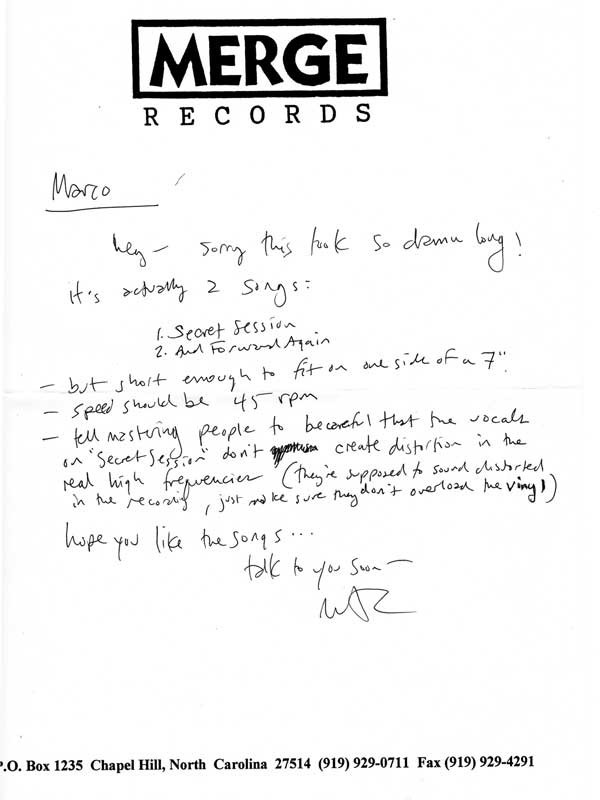 MERGE
RECORDS
Marco
hey — sorry this took so damn long!
it's actually 2 songs:
1. Secret Session
2. And Forward Again
— but short enough to fit on one side of a 7".
— speed should be 45 rpm
— tell mastering people to be careful that the vocals
on "Secret Session" don't create distortion in the
real high frequencies (they're supposed to sound distorted
in the recording, just make sure they don't overload the vinyl)
hope you like the songs...
talk to you soon —
P.O. Box 1235 Chapel Hill, North Carolina 27514 (919) 929-0711 Fax (919) 929-4291